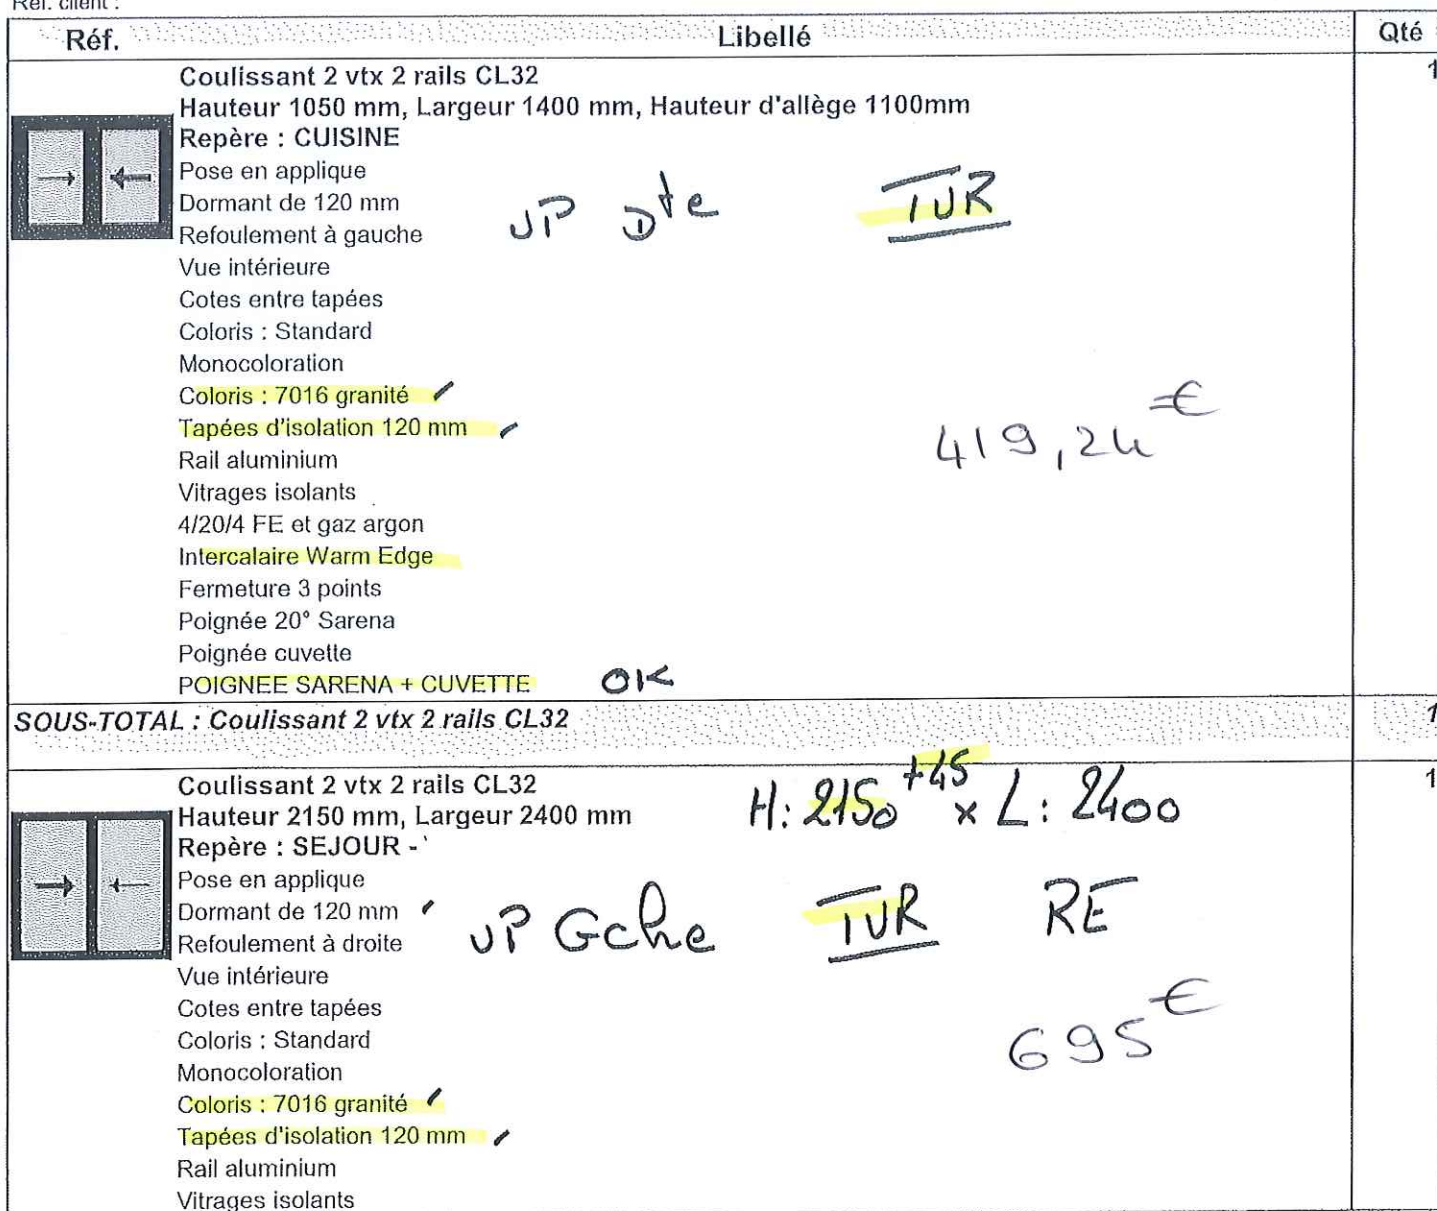 Réf. client :
Réf. Libellé Qté
Coulissant 2 vtx 2 rails CL32 1
Hauteur 1050 mm, Largeur 1400 mm, Hauteur d'allège 1100mm
Repère : CUISINE
Pose en applique
Dormant de 120 mm
Refoulement à gauche
VP Dte TVR
Vue intérieure
Cotes entre tapées
Coloris : Standard
Monocoloration
Coloris : 7016 granité
Tapées d'isolation 120 mm
419,24€
Rail aluminium
Vitrages isolants
4/20/4 FE et gaz argon
Intercalaire Warm Edge
Fermeture 3 points
Poignée 20° Sarena
Poignée cuvette
POIGNEE SARENA + CUVETTE OK
SOUS-TOTAL : Coulissant 2 vtx 2 rails CL32 1
Coulissant 2 vtx 2 rails CL32 1
Hauteur 2150 mm, Largeur 2400 mm H: 2150 +45 x L: 2400
Repère : SEJOUR -
Pose en applique
Dormant de 120 mm
Refoulement à droite VP Gche TVR RE
Vue intérieure
Cotes entre tapées
Coloris : Standard 695€
Monocoloration
Coloris : 7016 granité
Tapées d'isolation 120 mm
Rail aluminium
Vitrages isolants